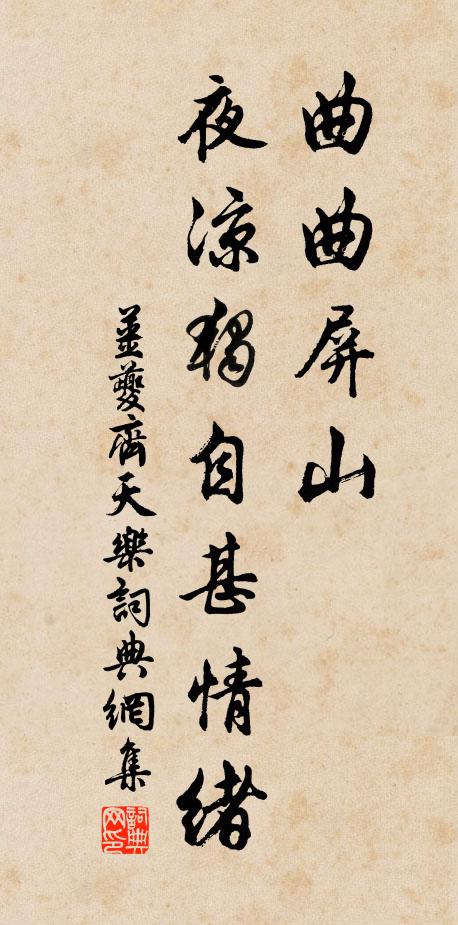 曲曲屏山
夜涼獨自甚情緒
薑夔齊天樂詞典網集
詞典网印